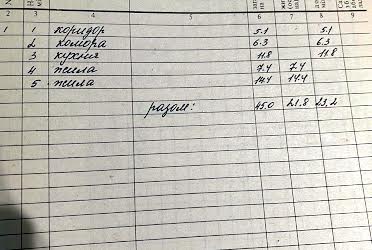 1 2 3 4 5 6 7 8 9
1 1 коридор 5.1 5.1
2 комора 6.3 6.3
3 кухня 11.8 11.8
4 жила 7.4 7.4
5 жила 14.4 14.4
разом: 45.0 21.8 23.2